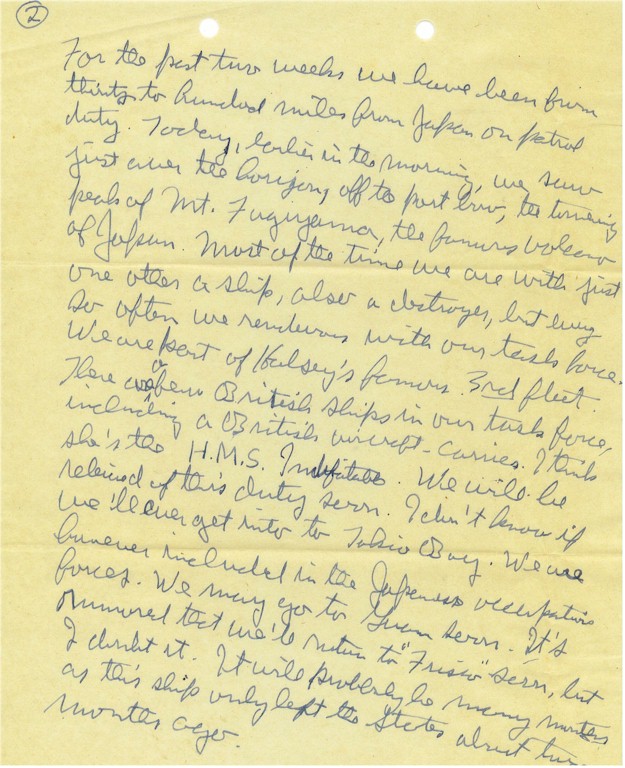 2
For the past two weeks we have been from
thirty to hundred miles from Japan on patrol
duty. Today, earlier in the morning, we saw
just over the horizon, off to port bow, the towering
peak of Mt. Fugiyama, the famous volcano
of Japan. Most of the time we are with just
one other a ship, also a destroyer, but every
so often we rendevous with our task force.
We are part of Halsey's famous 3rd fleet.
There are a few British ships in our task force,
including a British aircraft-carrier. I think
she's the H.M.S. . We will be
relieved of this duty soon. I don't know if
we'll ever get into to Tokio Bay. We are
however included in the Japanese occupation
forces. We may go to Guam soon. It's
rumored that we'll return to "Frisco" soon, but
I doubt it. It will probably be many months
as this ship only left the States about two
months ago.